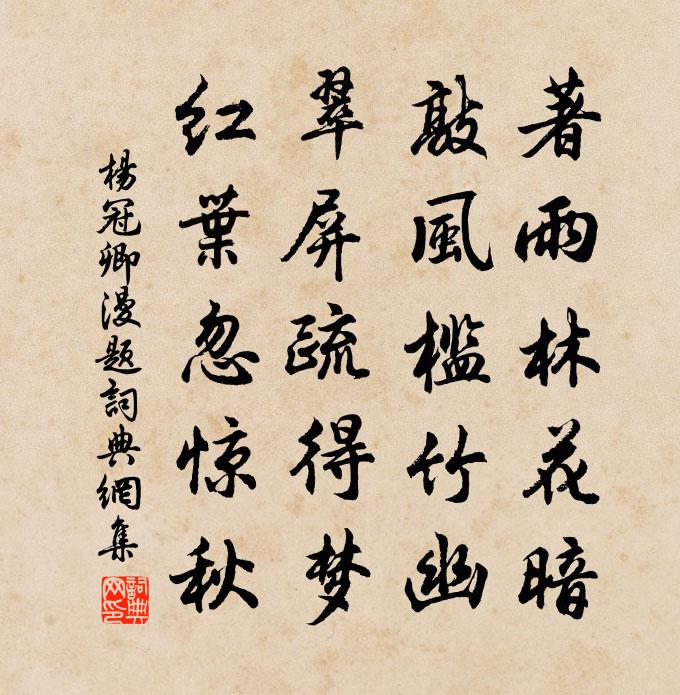 著雨林花暗
敲風檻竹幽
翠屏疏得梦
红葉忽惊秋
楊冠卿漫题詞典網集
詞典网印